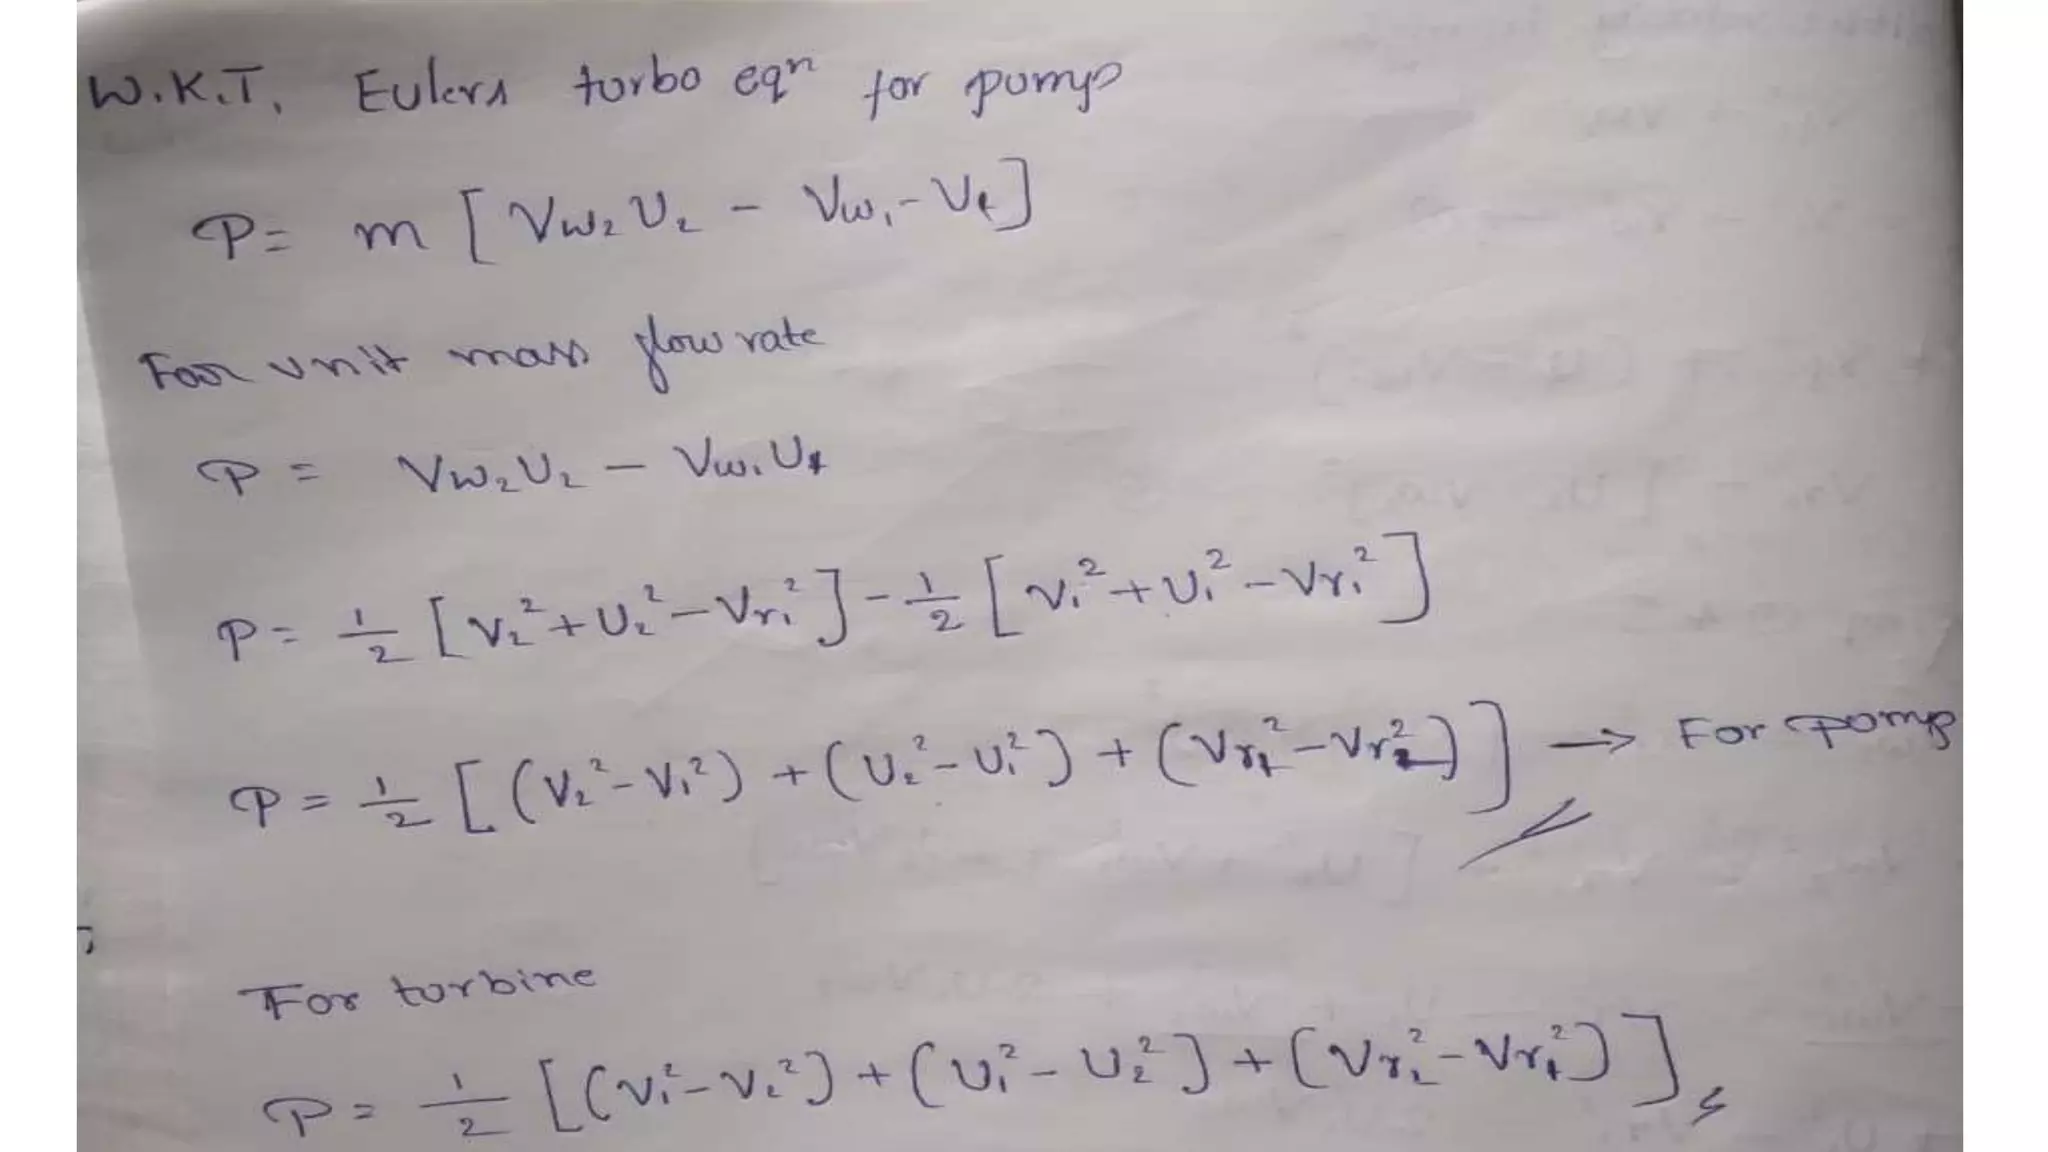 W.K.T, Eulers turbo eqn for pump
P = m [Vw₂U₂ - Vw₁-U₁]
For unit mass flow rate
P = Vw₂U₂ - Vw₁U₁
P = 1/2 [V₂²+U₂²-Vr₁²] - 1/2 [V₁²+U₁²-Vr₁²]
P = 1/2 [(V₂²-V₁²) + (U₂²-U₁²) + (Vr₁²-Vr₂²)] → For pump
For turbine
P = 1/2 [(V₁²-V₂²) + (U₁²-U₂²) + (Vr₂²-Vr₁²)]